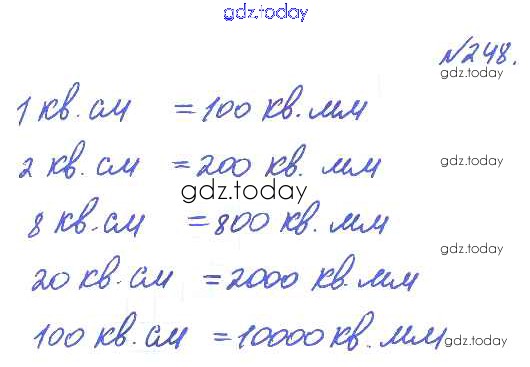 gdz.today
№248.
gdz.today
1 кв.см = 100 кв.мм
2 кв.см = 200 кв. мм
gdz.today
gdz.today
8 кв.см = 800 кв.мм
gdz.today
20 кв.см = 2000 кв.мм
100 кв.см = 10000 кв.мм
gdz.today